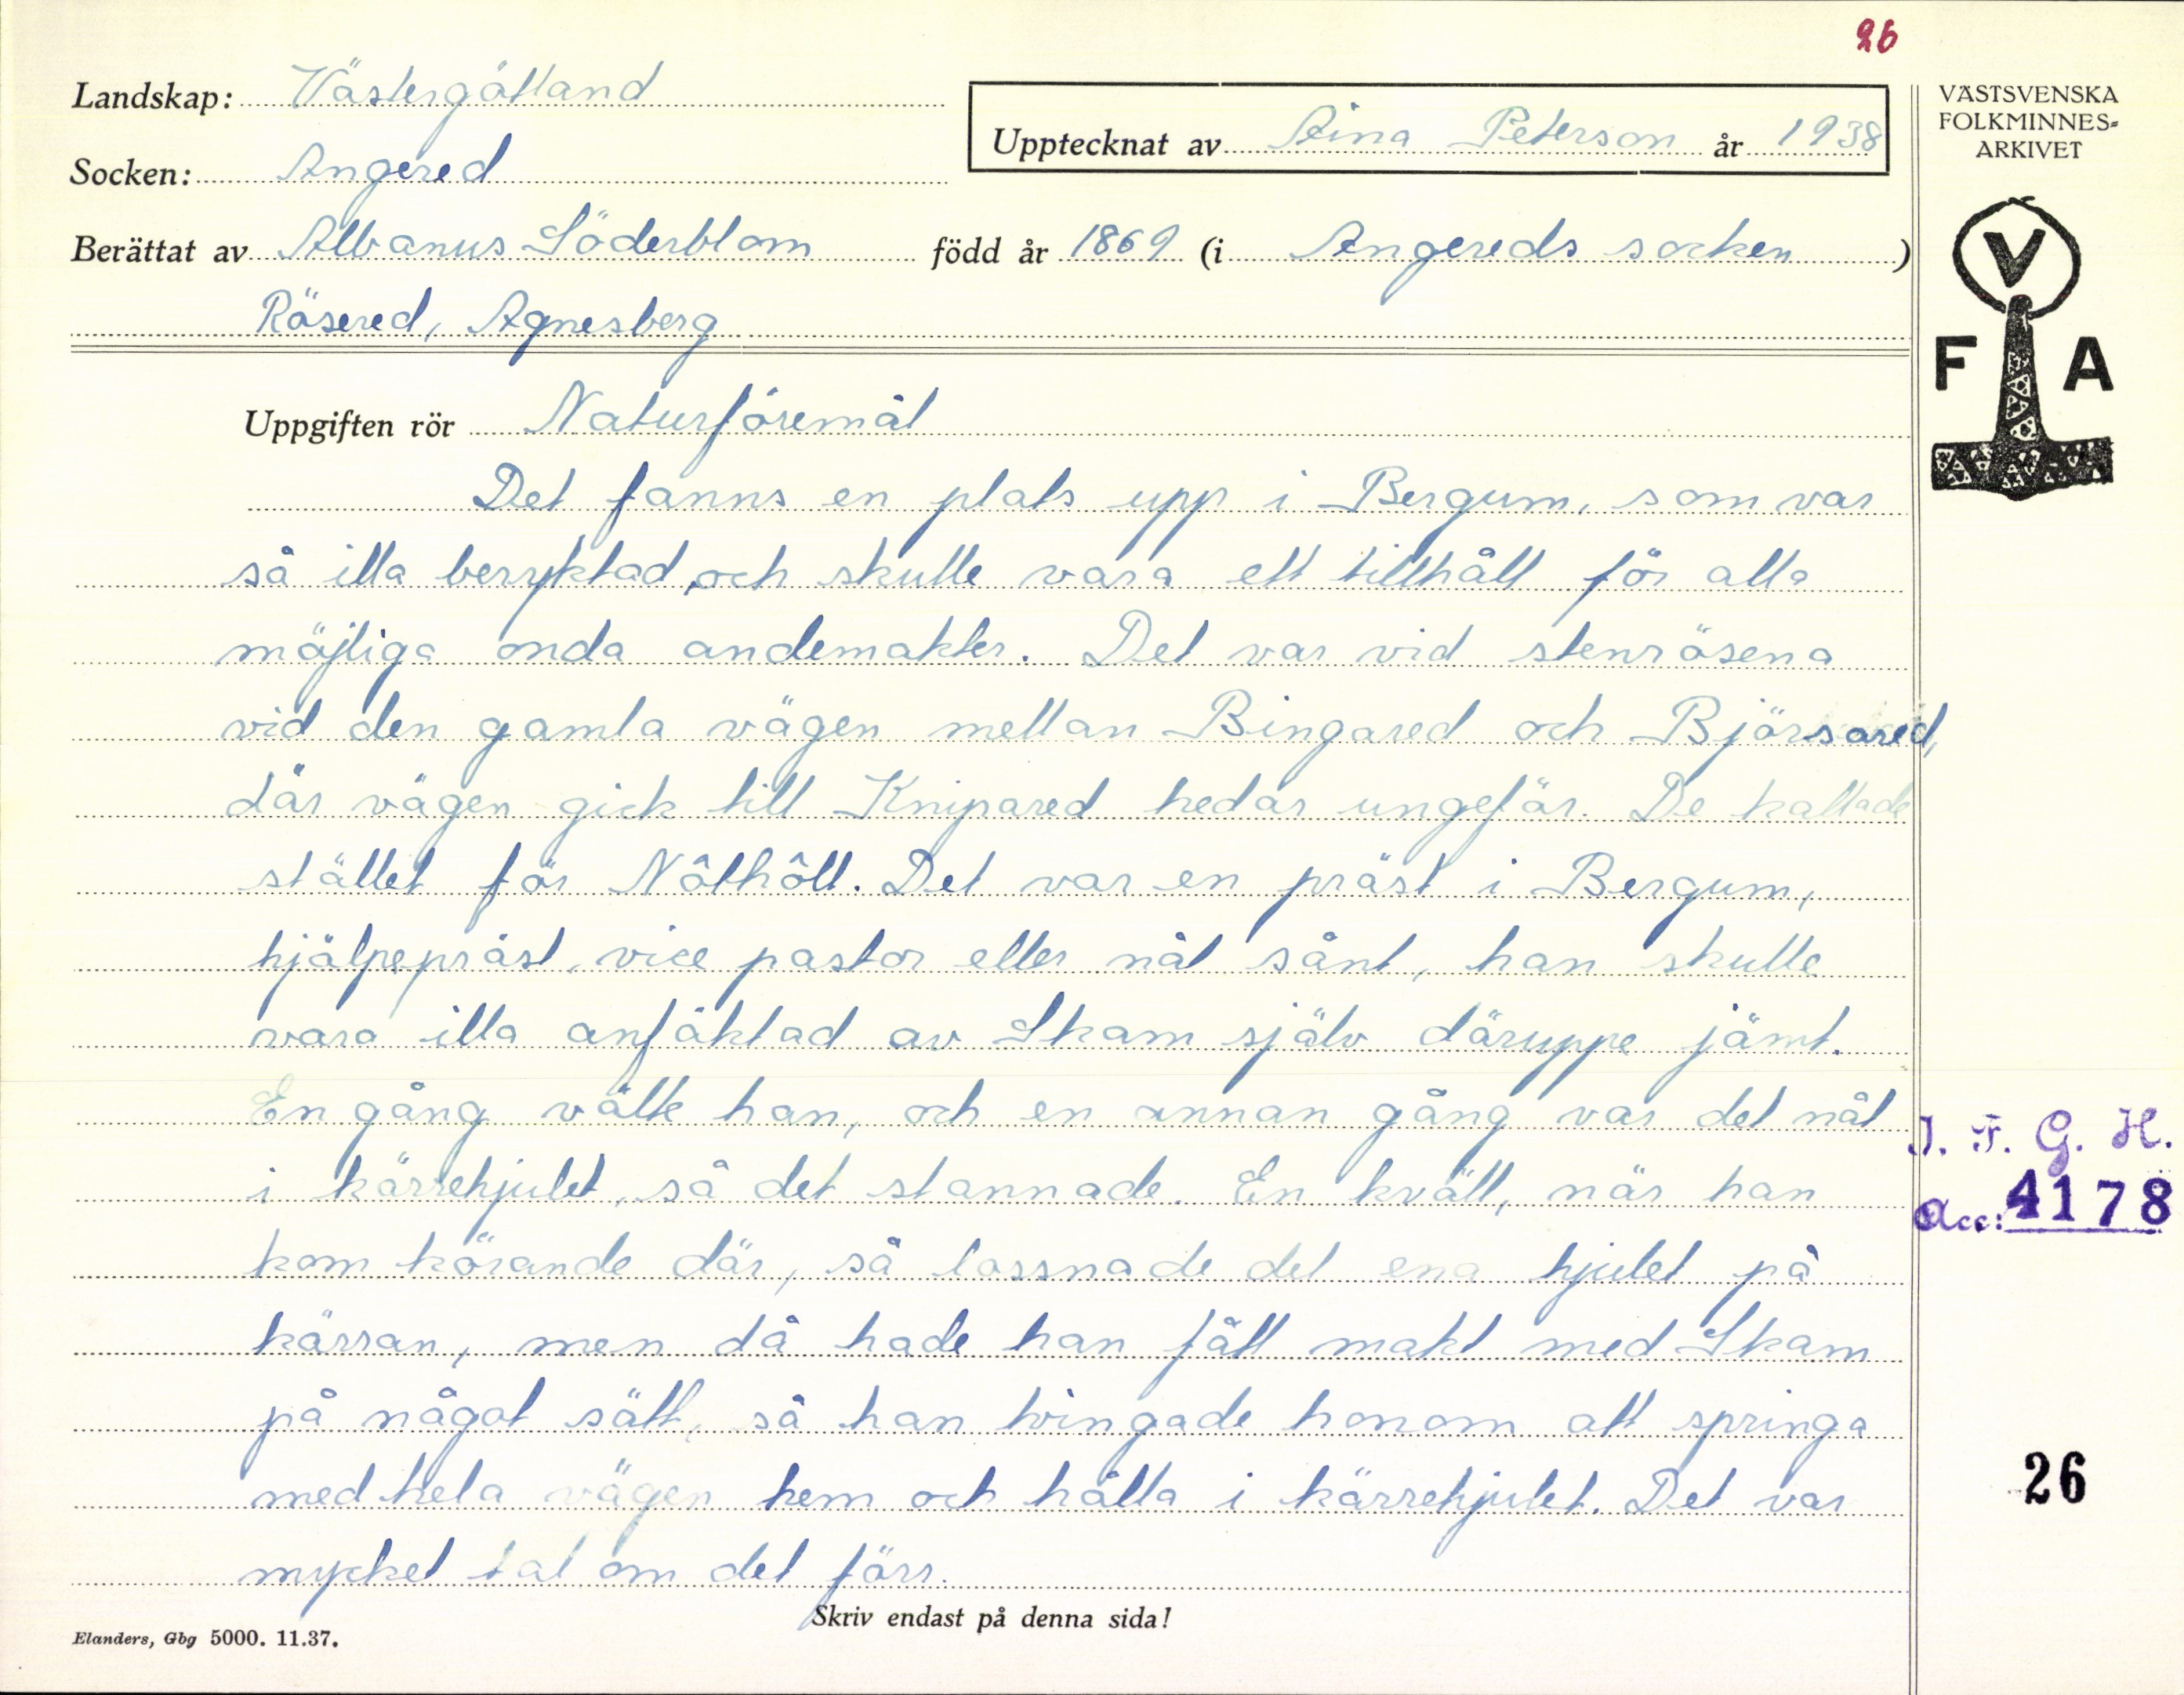 26
Landskap: Västergötland
Upptecknat av Aina Peterson år 1938
Socken: Angered
Berättat av Albanus Söderblom född år 1869 (i Angereds socken)
Rösered, Agnesberg
VÄSTSVENSKA
FOLKMINNES-
ARKIVET
V
F A
Uppgiften rör Naturföremål
Det fanns en plats upp i Bergum, som var
så illa beryktad och skulle vara ett tillhåll för alla
möjliga onda andemakter. Det var vid stenrösena
vid den gamla vägen mellan Bingared och Björsared,
där vägen gick till Knipared hedär ungefär. De kallade
stället för Nôlhôll. Det var en präst i Bergum,
hjälpepräst, vice pastor eller nåt sånt, han skulle
vara illa anfäktad av Skam själv däruppe jämt.
En gång välte han, och en annan gång var det nåt
i kärrehjulet, så det stannade. En kväll, när han
kom körande där, så lossnade det ena hjulet på
kärran, men då hade han fått makt med Skam
på något sätt, så han tvingade honom att springa
med hela vägen hem och hålla i kärrehjulet. Det var
mycket tal om det förr.
I. F. G. H.
Acc: 4178
26
Skriv endast på denna sida!
Elanders, Gbg 5000. 11.37.